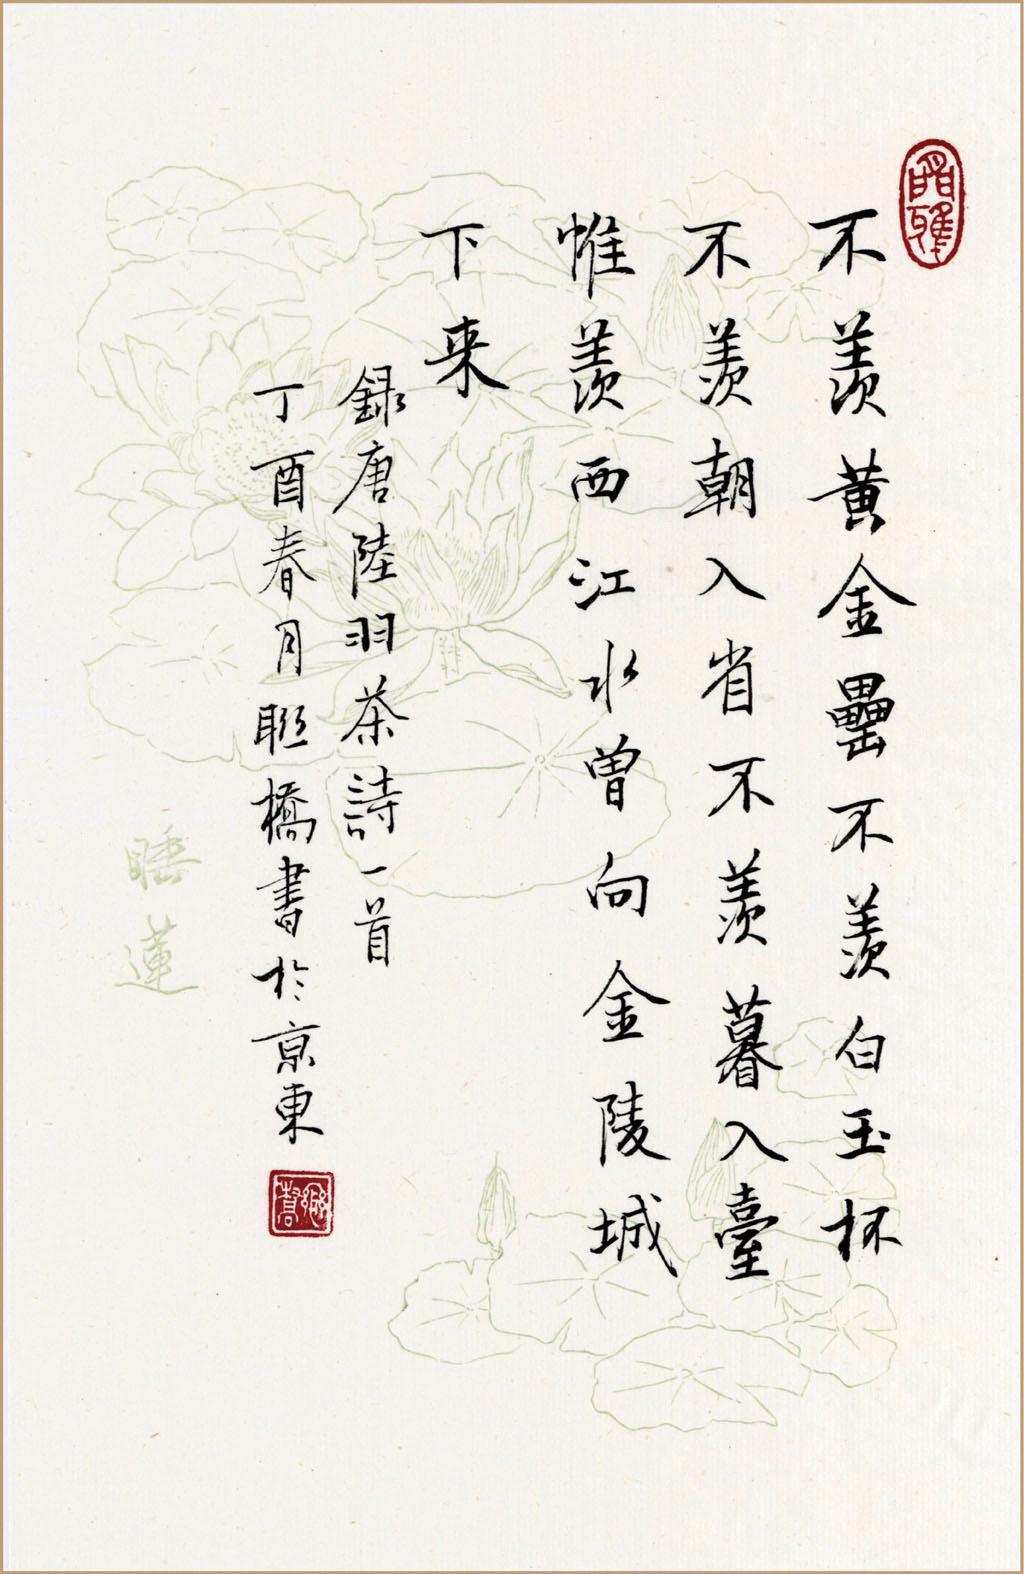 不羡黄金罍不羡白玉杯
不羡朝入省不羡暮入臺
惟羡西江水曾向金陵城
下来
録唐陸羽茶詩一首
丁酉春月聍橋書於京東
睡蓮